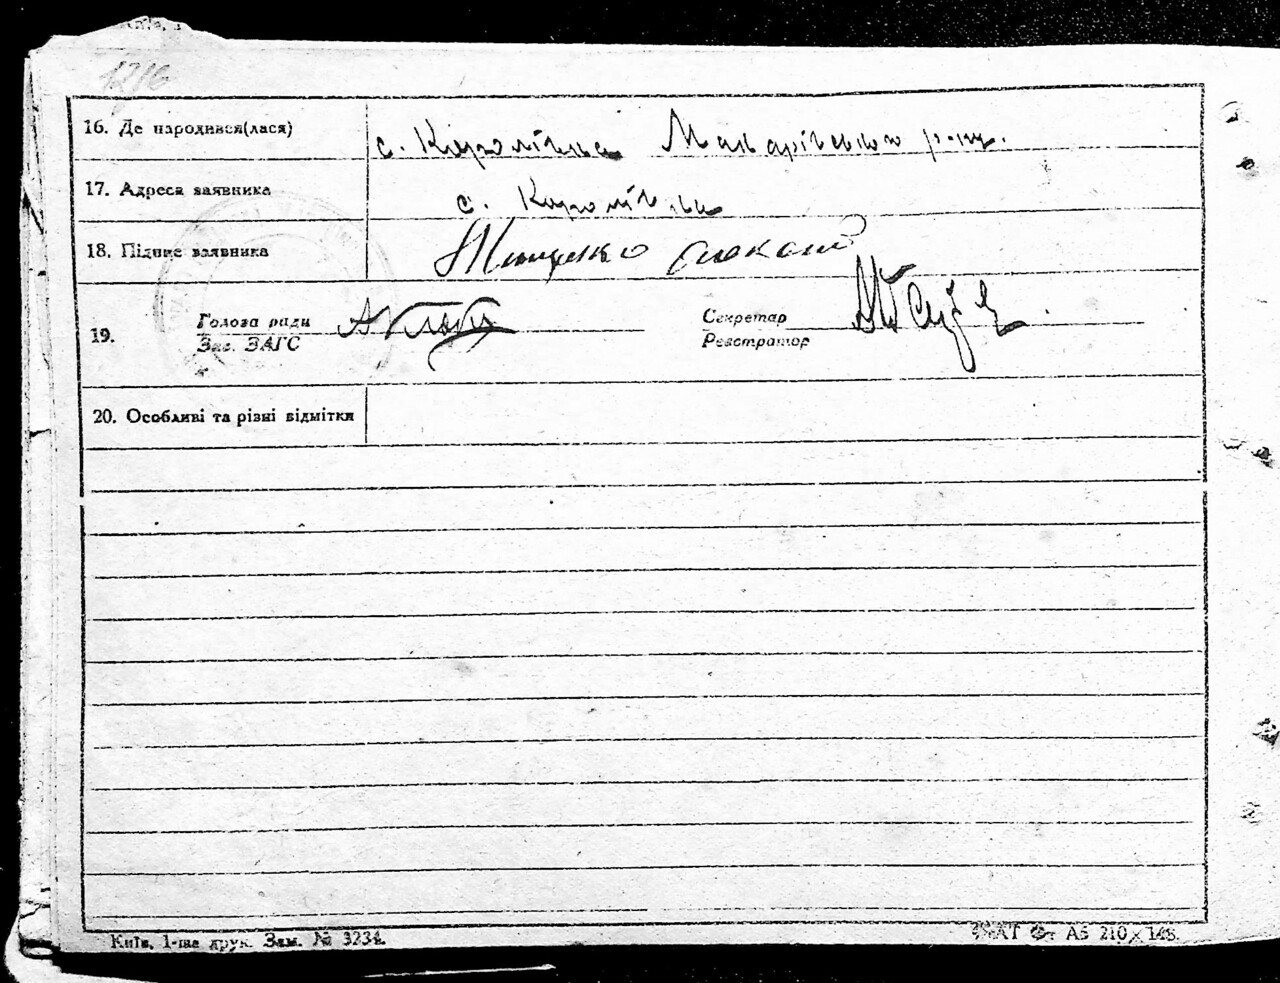 1216
16. Де народився(лася) с. Королівка Макарівського р-ну.
17. Адреса заявника с. Королівка
18. Підпис заявника
19. Голова ради Секретар
Зав. ЗАГС Реєстратор
20. Особливі та різні відмітки
Київ, 1-ша друк. Зам. № 3234. А5 210×148.